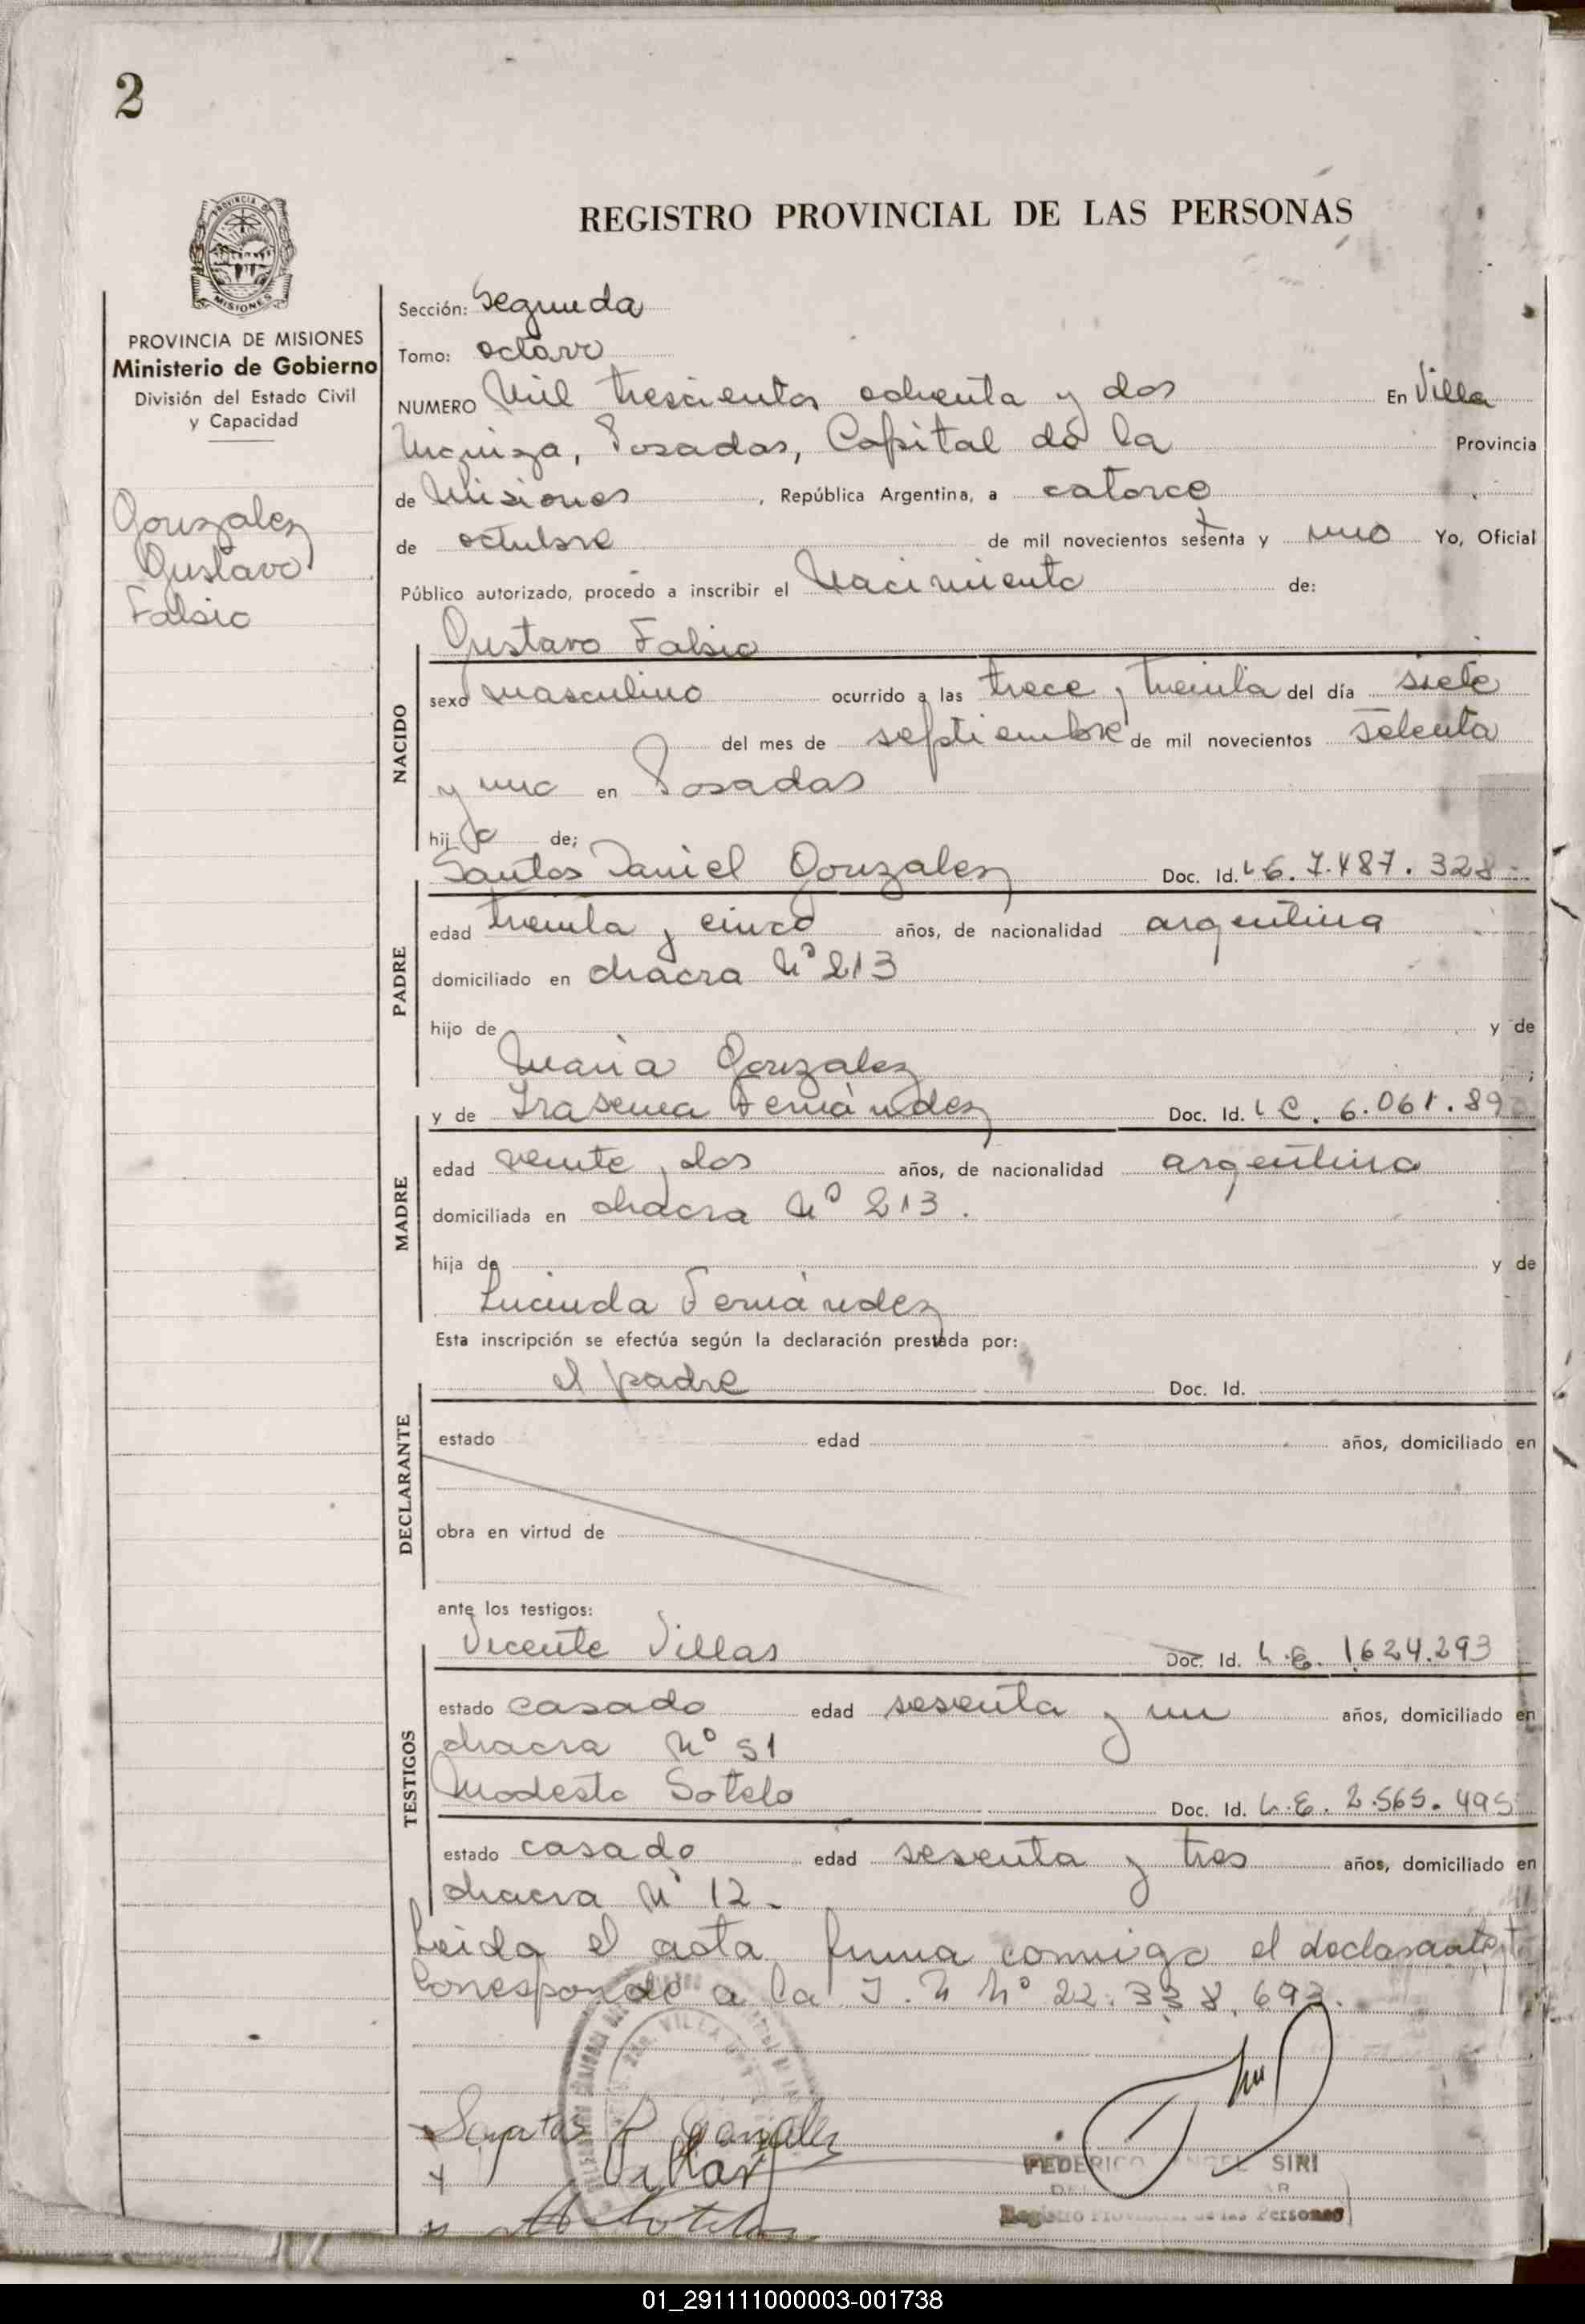 2
REGISTRO PROVINCIAL DE LAS PERSONAS
MISIONES
PROVINCIA DE MISIONES
Ministerio de Gobierno
División del Estado Civil
y Capacidad
Gonzalez
Gustavo
Fabio
Sección: Segunda
Tomo: octavo
NUMERO Mil trescientos ochenta y dos En Villa
Urquiza, Posadas, Capital de la Provincia
de Misiones, República Argentina, a catorce
de octubre de mil novecientos setenta y uno Yo, Oficial
Público autorizado, procedo a inscribir el Nacimiento de:
Gustavo Fabio
NACIDO
sexo masculino ocurrido a las trece y treinta del día siete
del mes de septiembre de mil novecientos setenta
y uno en Posadas
hijo de;
Santos Daniel Gonzalez Doc. Id. 7.487.328
PADRE
edad treinta y cinco años, de nacionalidad argentina
domiciliado en chacra Nº 213
hijo de y de
Maria Gonzalez ;
y de Irasema Fernández Doc. Id. L C. 6.061.89
MADRE
edad veinte y dos años, de nacionalidad argentina
domiciliada en chacra Nº 213.
hija de y de
Lucinda Fernández
Esta inscripción se efectúa según la declaración prestada por:
el padre Doc. Id.
DECLARANTE
estado edad años, domiciliado en
obra en virtud de
ante los testigos:
Vicente Villas Doc. Id. L.E. 1.624.293
TESTIGOS
estado casado edad sesenta y un años, domiciliado en
chacra Nº 51
Modesto Sotelo Doc. Id. L.E. 2.565.495
estado casado edad sesenta y tres años, domiciliado en
chacra Nº 12-
Leida el acta firma conmigo el declarante
Corresponde a la I. N Nº 22.338.693.
Santos D Gonzalez
FEDERICO ANGEL SIRI
Registro Provincial de las Personas
01_291111000003-001738